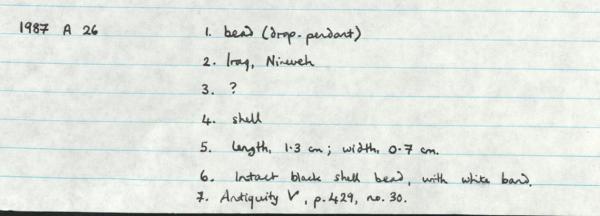 1987 A 26 1. bead (drop-pendant)
2. Iraq, Nineveh
3. ?
4. shell
5. length, 1.3 cm; width, 0.7 cm.
6. Intact black shell bead, with white band.
7. Antiquity V, p.429, no. 30.